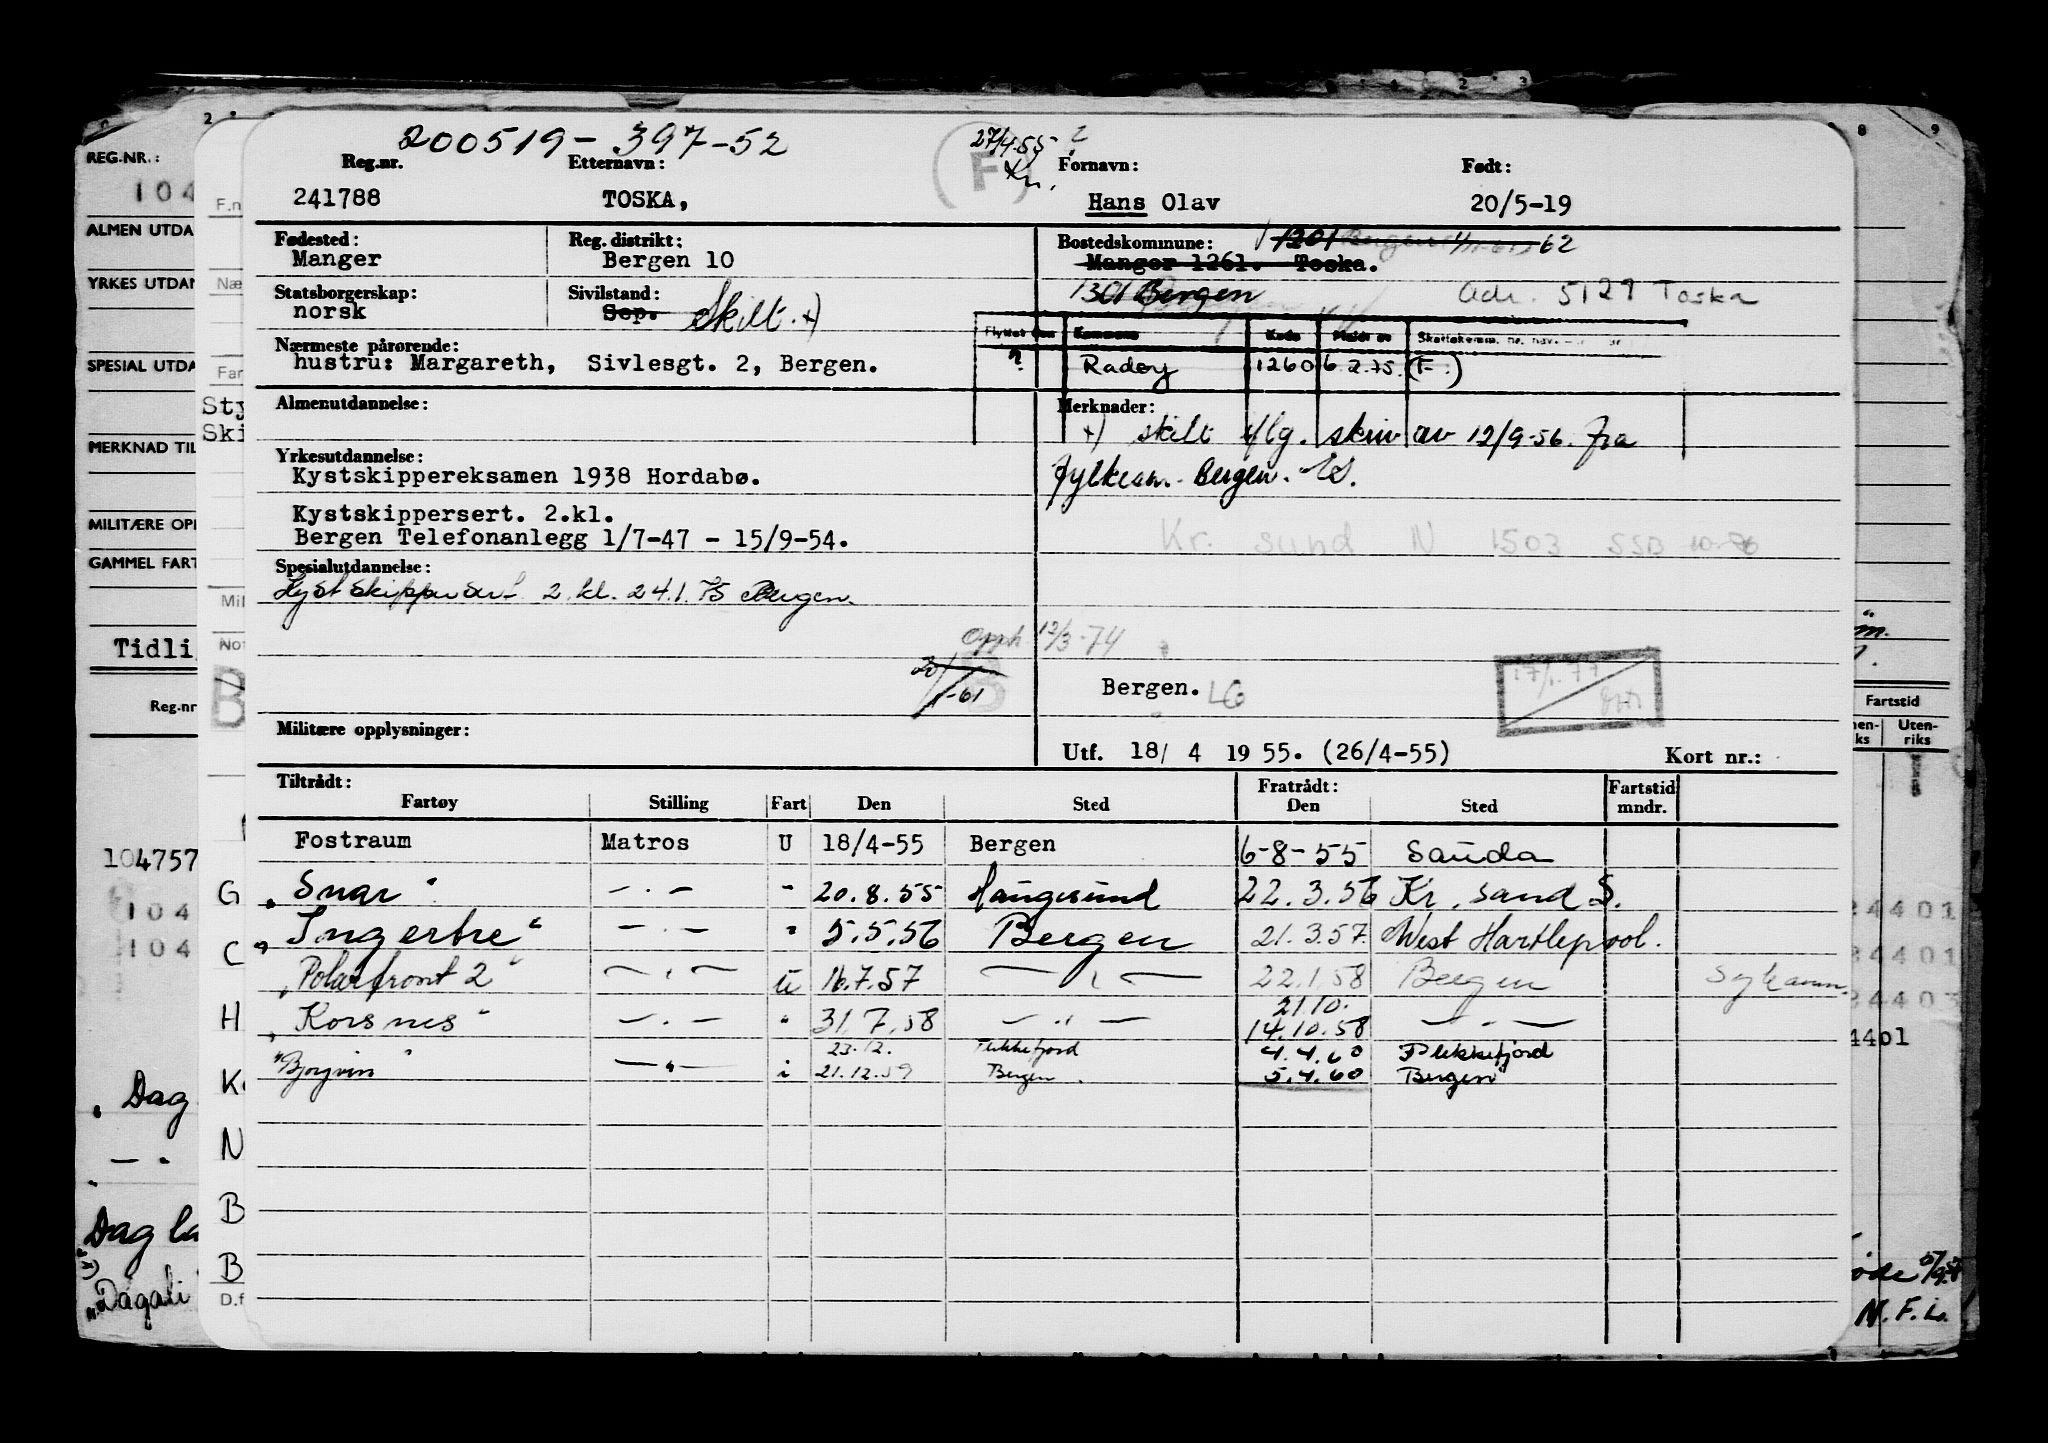 200519-397-52
27/4-55
Reg.nr. Etternavn: (F) Fornavn: Født:
241788 TOSKA, Hans Olav 20/5-19
Fødested: Reg. distrikt: Bostedskommune: 1201 Bergen 62
Manger Bergen 10 Manger 1261. Toska.
1301 Bergen Adr. 5127 Toska
Statsborgerskap: Sivilstand:
norsk Sep. Skilt. x)
Kommune Kode Meldt av
Nærmeste pårørende:
hustru: Margareth, Sivlesgt. 2, Bergen.
? Radøy 1260 6.2.75. (F.)
Almenutdannelse: Merknader:
x) skilt iflg. skriv av 12/9-56. fra
fylkesm. Bergen.
Yrkesutdannelse:
Kystskippereksamen 1938 Hordabø.
Kystskippersert. 2.kl.
Bergen Telefonanlegg 1/7-47 - 15/9-54.
Kr. sund N 1503 SSB 10-76
Spesialutdannelse:
Kystskippersert 2. kl. 24.1.75 Bergen.
Opph 12/3-74
20/1-61
Bergen. LG
17/1.77
Militære opplysninger:
Utf. 18/ 4 19 55. (26/4-55) Kort nr.:
Tiltrådt: Fratrådt: Fartstid
Fartøy Stilling Fart Den Sted Den Sted mndr.
Fostraum Matros U 18/4-55 Bergen 6-8-55 Sauda
"Snar" - . - - 20.8.55 Haugesund 22.3.56 Kr. sand S.
"Ingertre" - . - " 5.5.56 Bergen 21.3.57. West Hartlepool.
"Polarfront 2" - . - U 16.7.57 - " - 22.1.58 Bergen Sykanm.
21.10.
"Korsnes" - . - " 31.7.58 - " - 14.10.58 - " -
23.12. Flekkefjord 4.4.60 Flekkefjord
"Bjørgvin" - " - i 21.12.59 Bergen. 5.4.60 Bergen
REG.NR.:
104
ALMEN UTDA
YRKES UTDAN
SPESIAL UTDA
MERKNAD TIL
MILITÆRE OPP
GAMMEL FART
Tidli
Reg.nr
104757
104
104
Dag
Dag
"Dagali
F.n
Næ
Far
Sty
Ski
Mil
Not
B
G
C
H
K
N
B
B
D.f
Fartstid
nen-
ks
Uten-
riks
24401
34401
34403
4401
N.F.L.